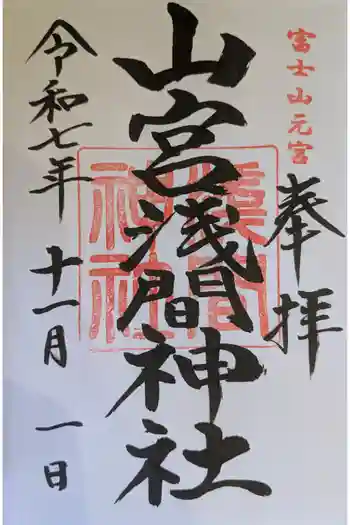 富士山元宮
奉拝
山宮浅間神社
浅間神社
令和七年十一月一日